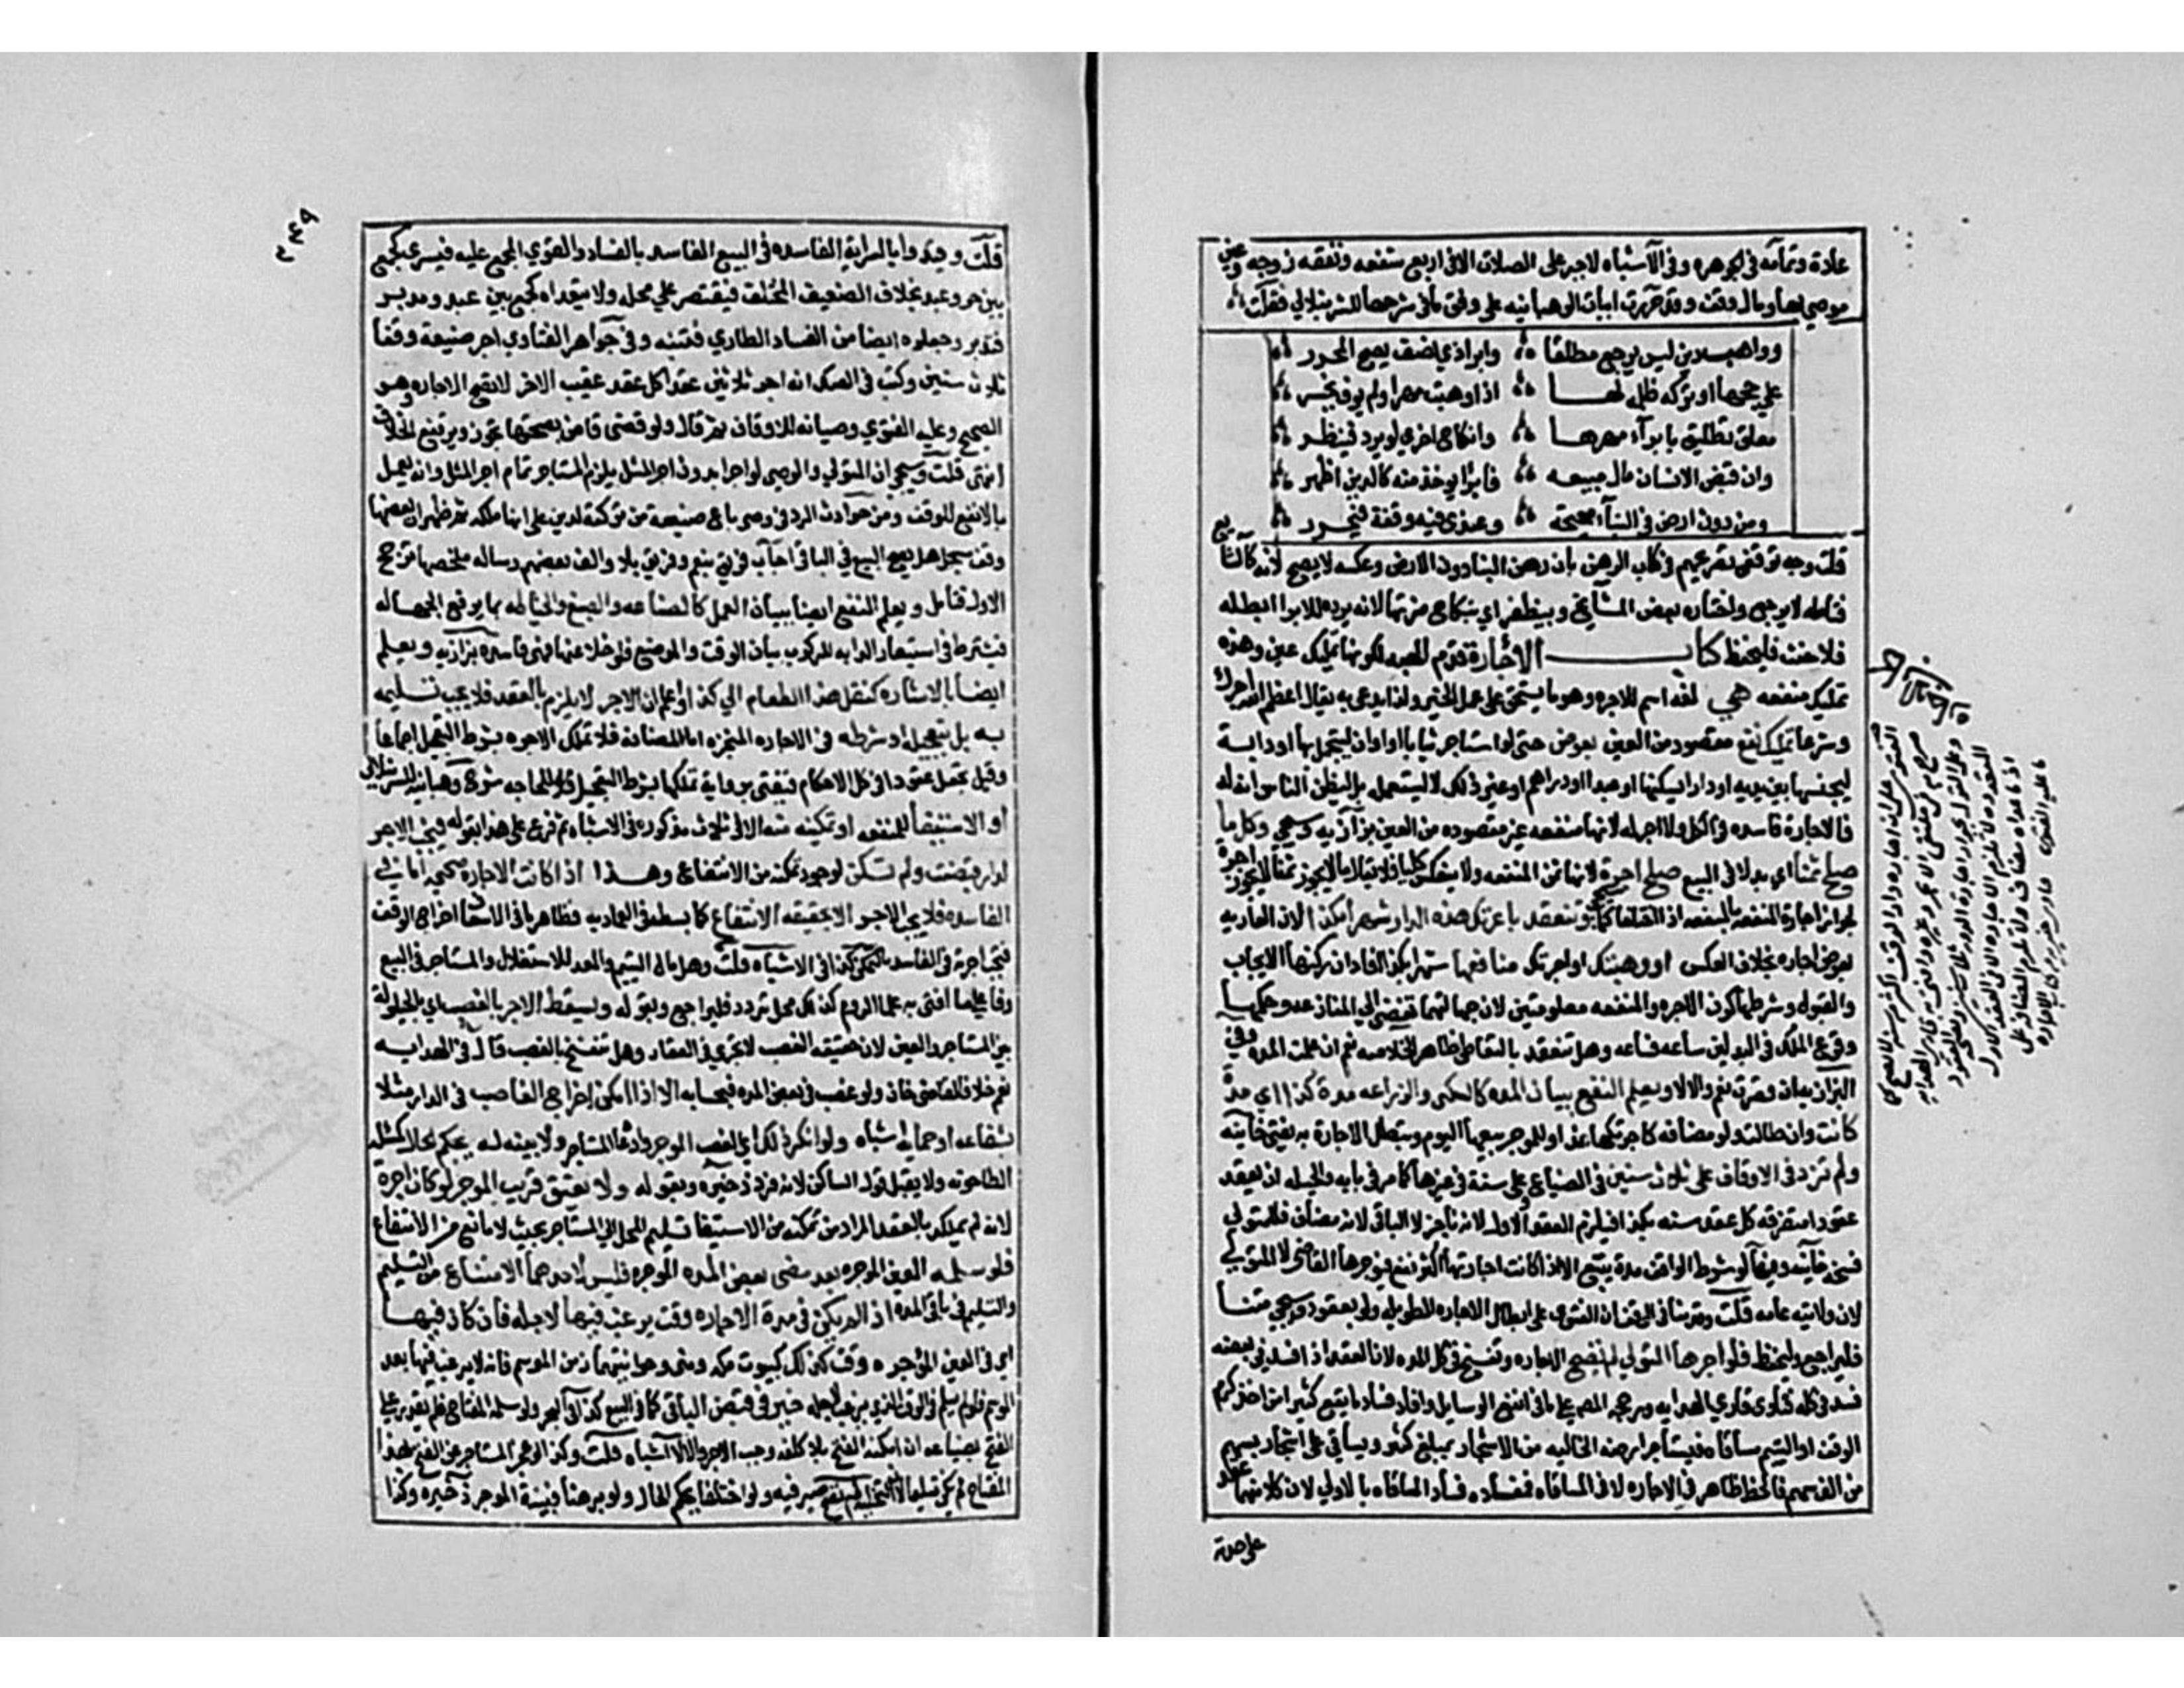 عادة وتمامه في الجوهره وفي الاشباه لا جبر على الصلات الا في اربع شفعه ونفقه زوجه وعين
موصى بها ومال وقف وقد حررت ابيات الوهبانيه على وفق ما في شرحها للشرنبلالي فقلت
وواهب دين ليس يرجع مطلقا وابراذي نصف يصح المحرر
على حجها او تركه ظلمه لها اذا وهبت مهرا ولم يوف يخسر
معلق تطليق بابراء مهرها وانكاح اخرى لو برد فيظفر
وان قبض الانسان مال مبيعه فابرا يوخذ منه كالدين اظهر
ومن دون ارض في البناء صحيحة وعندي فيه وقفة فيحرر
قلت وجه توقفي تصريحهم في كتاب الرهن بان رهن البنا دون الارض وعكسه لا يصح لانه كالشايع
فتامله لا يرجع واختاره بعض المشايخ ويظفر اي بنكاح ضرتها لانه برده للابرا ابطله
فلا حنث فليحفظ كتاب الاجارة قدم الهبه لكونها تمليك عين وهذه
تمليك منفعه هي لغه اسم للاجره وهو ما يستحق على عمل الخير ولذا يدعى به يقال اعظم الله اجرك
وشرعا تمليك نفع مقصود من العين بعوض حتى لو استاجر ثيابا او اواني ليتجمل بها او دابة
ليجنبها بين يديه او دارا لا ليسكنها او عبدا او دراهم او غير ذلك لا ليستعمله بل ليظن الناس انه له
فالاجارة فاسده في الكل ولا اجر له لانها منفعه غير مقصوده من العين بزازيه وسيجي وكل ما
صلح ثمنا اي بدلا في البيع صلح اجرة لانها ثمن المنفعه ولا ينعكس كليا فلا يقال ما لا يجوز ثمنا لا يجوز اجرة
لجواز اجارة المنفعه بالمنفعه اذا اختلفا كما سيجي وتنعقد باعرتك هذه الدار شهرا بكذا لان العاريه
بعوض اجاره بخلاف العكس او وهبتك او اجرتك منافعها شهرا بكذا افاد ان ركنها الايجاب
والقبول وشرطها كون الاجره والمنفعه معلومتين لان جهالتهما تفضي الى المنازعه وحكمها
وقوع الملك في البدلين ساعه فساعه وهل تنعقد بالتعاطي ظاهر الخلاصه نعم ان علمت المده وفي
البزازيه ان قصرت نعم والا لا ويعلم النفع ببيان المده كالسكنى والزراعه مدة كذا اي مدة
كانت وان طالت ولو مضافه كاجرتكها غدا وللموجر بيعها اليوم وتبطل الاجارة به يفتى خانيه
ولم تزد في الاوقاف على ثلاث سنين في الضياع وعلى سنة في غيرها كما مر في بابه والحيله ان يعقد
عقودا متفرقه كل عقد سنه بكذا فيلزم العقد الاول لانه ناجز لا الباقي لانه مضاف فللمتولي
فسخه خانيه وفيها لو شرط الواقف مدة يتبع الا اذا كانت اجارتها اكثر نفع فيوجرها القاضي لا المتولي
لان ولايته عامه قلت وقدمنا في الوقف ان الفتوى على ابطال الاجاره الطويله ولو بعقود وسيجي متنا
فليراجع وليحفظ فلو اجرها المتولي لم تصح الاجاره وتفسخ في كل المده لان العقد اذا فسد في بعضه
فسد في كله فتاوى قاري الهدايه ورجحه المصنف على ما في انفع الوسايل وافاد فساد ما يقع كثيرا من اخذ كرم
الوقف او اليتيم مساقاة فيستاجر ارضه الخاليه من الاشجار بمبلغ كثير ويساقي على اشجار بسهم
من الف سهم فالحظ ظاهر في الاجاره لا في المساقاه ففساده فساد المساقاه بالاولى لان كلا منهما عقد
على حدة
قلت وقيد وايا السراية الفاسده في البيع الفاسد بالفساد القوي المجمع عليه فيسري كجمع
بين حر وعبد بخلاف الضعيف المختلف فيقتصر على محله ولا يتعداه كجمع بين عبد ومدبر
فتدبر وجعلوه ايضا من الفساد الطاري فتنبه وفي جواهر الفتاوي اجر ضيعة وقفا
ثلاث سنين وكتب في الصك انه اجر ثلاثين عقدا كل عقد عقيب الاخر لا تصح الاجاره وهو
الصحيح وعليه الفتوي وصيانه للاوقاف ثم قال ولو قضى قاض بصحتها تجوز ويرتفع الخلاف
انتهى قلت وسيجي ان المتولي والوصي لو اجرا بدون اجر المثل يلزم المستاجر تمام اجر المثل وانه يعمل
بالانفع للوقف ومن حوادث الرد في وصي باع ضيعة من تركة لدين على انها ملكه ثم ظهر ان بعضها
وقف سجل هل يصح البيع في الباقي اجاب فريق بنعم وفريق بلا والف بعضهم رساله ملخصها ترجيح
الاول فتامل ويعلم النفع ايضا ببيان العمل كالصناعه والصبغ والخياطه بما يرفع الجهاله
فيشترط في استيجار الدابه للركوب بيان الوقت والموضع فلو خلا عنهما فهي فاسده بزازيه ويعلم
ايضا بالاشاره كنقل هذا الطعام الى كذا واعلم ان الاجر لا يلزم بالعقد فلا يجب تسليمه
به بل بتعجيله او شرطه في الاجاره المنجزه اما المضافه فلا تملك الاجره بشرط التعجيل اجماعا
وقيل تجعل عقودا في كل الاحكام فيفتى برواية تملكها بشرط التعجيل للحاجه شرح وهبانيه للشرنبلالي
او الاستيفا للمنفعه او تمكينه منه الا في ثلاث مذكوره في الاشباه ثم فرع على هذا بقوله فيجب الاجر
لدار قبضت ولم تسكن لوجود تمكنه من الانتفاع وهذا اذا كانت الاجارة صحيحه اما في
الفاسده فلا يجب الاجر الا بحقيقه الانتفاع كما بسط في العماديه وظاهر ما في الاسعاف اخراج الوقف
فتجب اجرته في الفاسد بالتمكن كذا في الاشباه قلت وهل مال اليتيم والمعد للاستغلال والمستاجر في البيع
وفا على ما افتى به علما الروم كذلك محل تردد فليراجع وبقوله ويسقط الاجر بالغصب اي بالحيلولة
بين المستاجر والعين لان حقيقه الغصب لا تجري في العقار وهل تنفسخ بالغصب قال في الهدايه
نعم خلافا لقاضي خان ولو غصب في بعض المده فبحسابه الا اذا امكن اخراج الغاصب من الدار مثلا
بشفاعه او حماية اشباه ولو انكر ذلك اي الغصب الموجر وادعاه المستاجر ولا بينه له يحكم الحال كمسئلة
الطاحونه ولا يقبل قول الساكن لانه فرد ذخيره وبقوله ولا يعتق قريب الموجر لو كان اجرة
لانه لم يملكه بالعقد المراد من تمكنه من الاستيفا تسليم المحل الى المستاجر بحيث لا مانع من الانتفاع
فلو سلمه العين الموجره بعد مضي بعض المده الموجره فليس لاحدهما الامتناع من التسليم
والتسلم في باقي المده اذا لم يكن في مدة الاجاره وقت يرغب فيها لاجله فان كان فيها
اي في العين المؤجره وقت كذلك كبيوت مكه ومنى وحوانيتها زمن الموسم فانه لا يرغب فيها بعد
الموسم فلو لم يسلم في الوقت الذي يرغب لاجله خير في قبض الباقي كما في البيع كذا في البحر ولو سلمه المفتاح فلم يقدر على
الفتح لضياعه ان امكنه الفتح بلا كلفه وجب الاجر والا لا اشباه قلت وكذا لو عجز المستاجر عن الفتح بهذا
المفتاح لم يكن تسليما لان التخليه لم تصح صيرفيه ولو اختلفا يحكم الحال ولو برهنا فبينة الموجر ذخيره وكذا